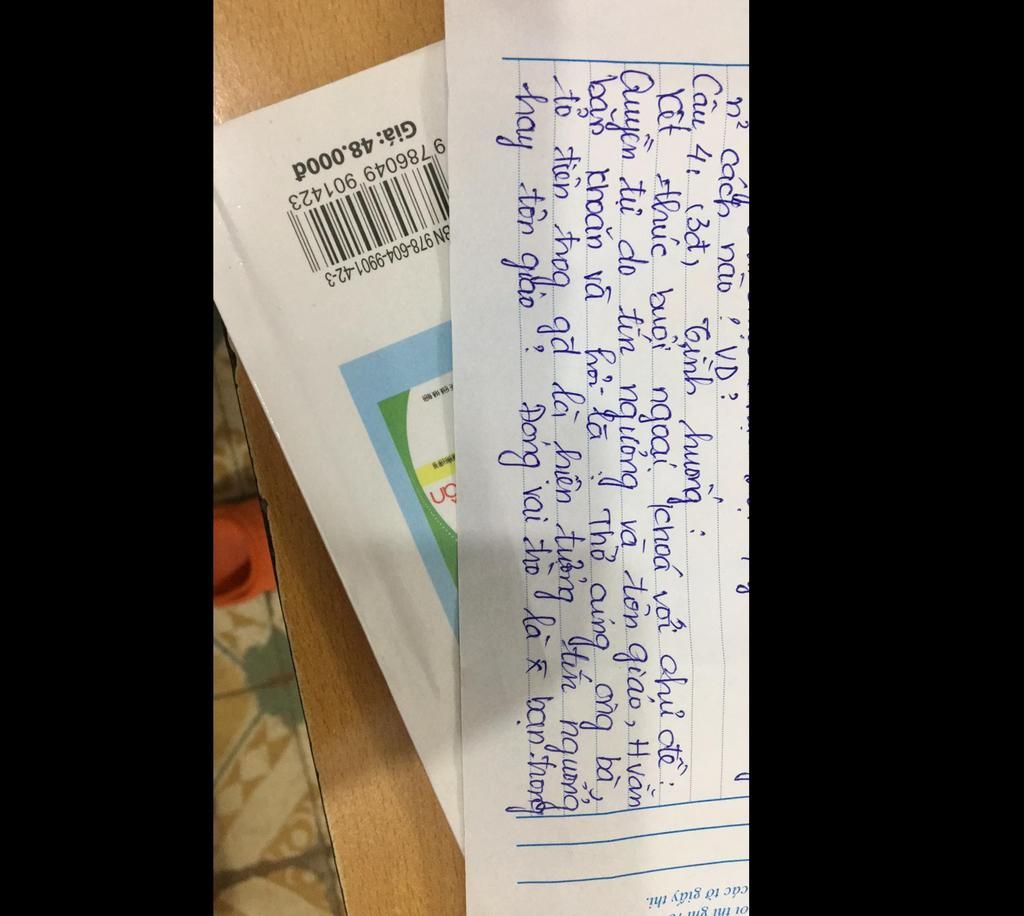 n² cách nào? VD?
Câu 4: (3đ) Tình huống:
Kết thúc buổi ngoại khoá với chủ đề:
Quyền tự do tín ngưỡng và tôn giáo, H vẫn
băn khoăn và hỏi là: Thờ cúng ông bà,
tổ tiên trog gđ là hiện tượng tín ngưỡng
hay tôn giáo? Đóng vai trò là x bạn trong
Giá: 48.000đ
9 786049 901423
BN 978-604-9901-42-3
các tờ giấy thi.